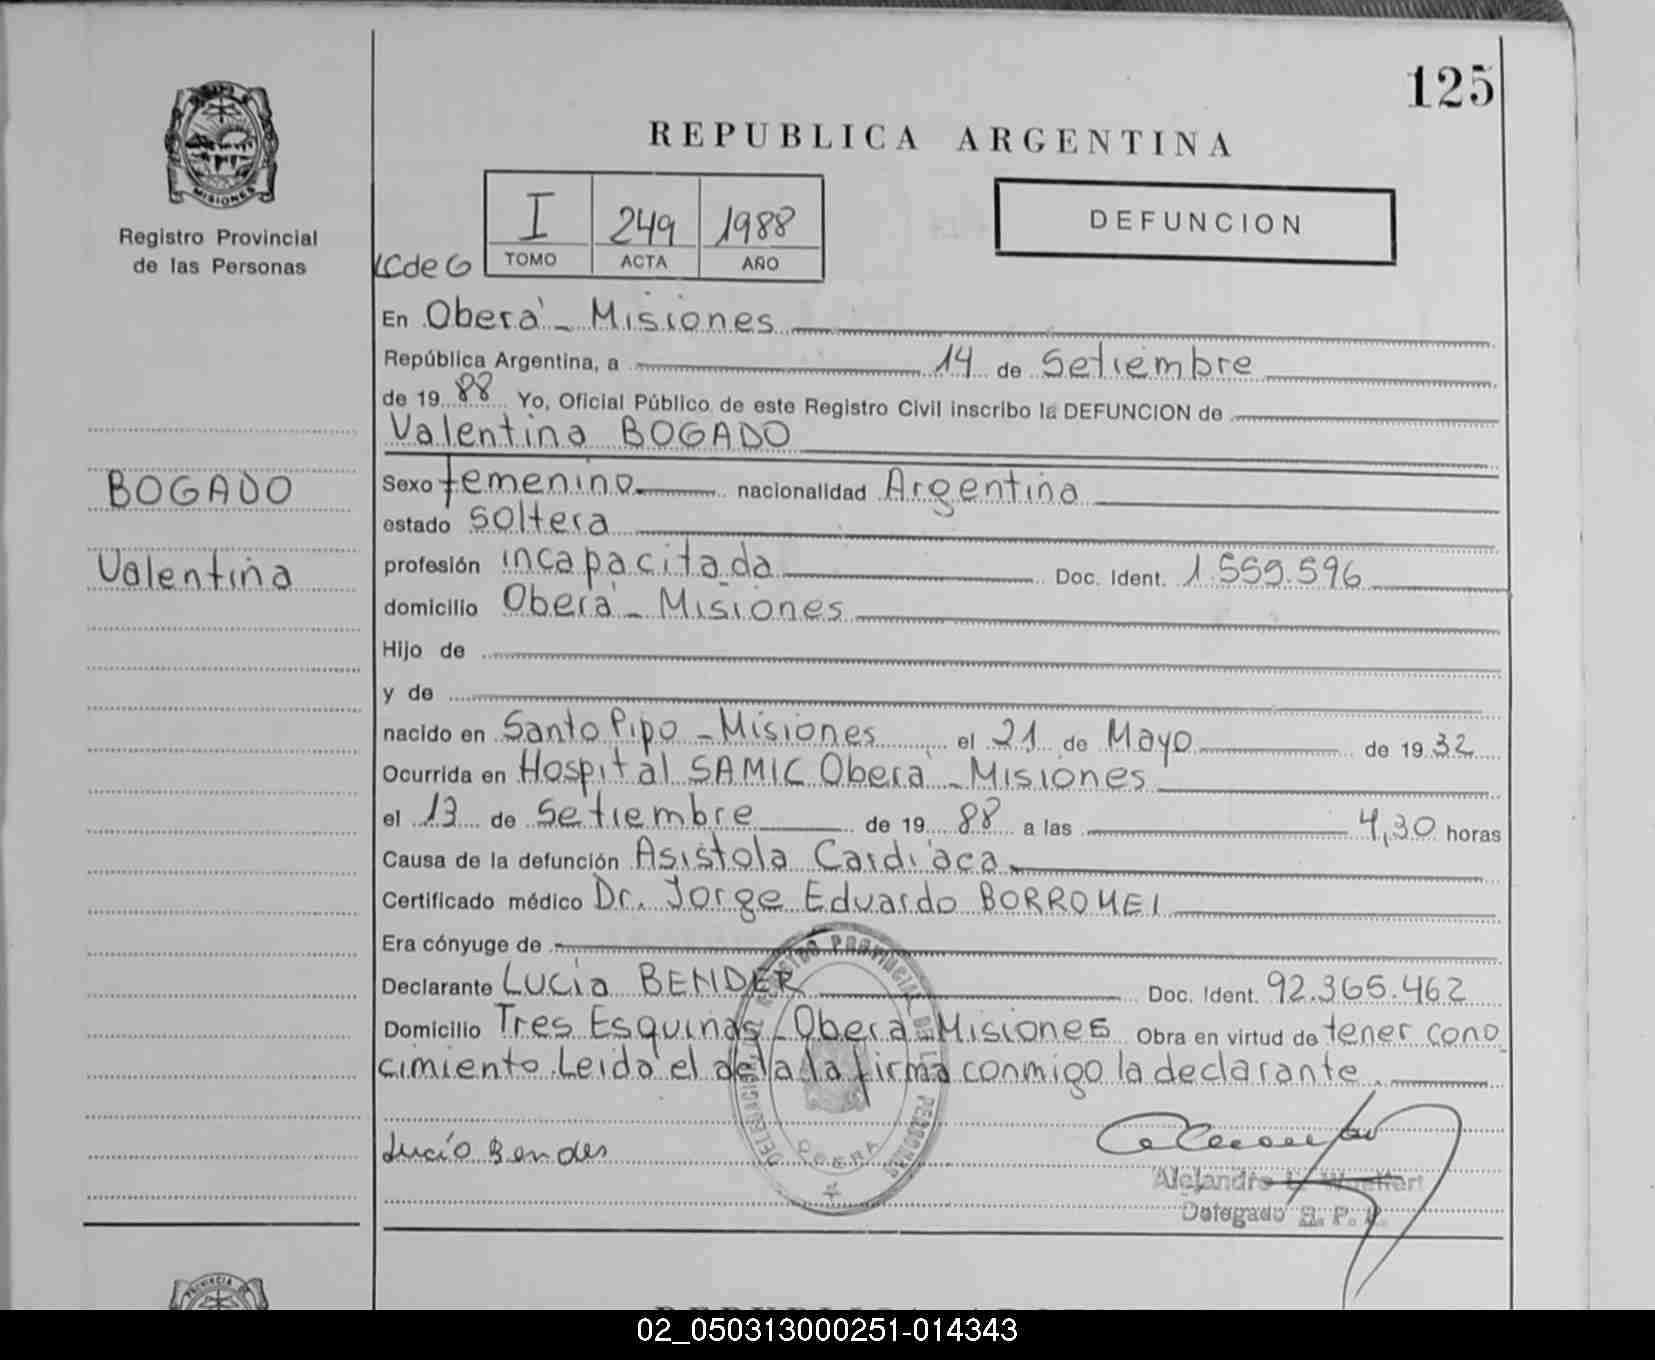 125
REPUBLICA ARGENTINA
MISIONES
Registro Provincial
de las Personas
I 249 1988
TOMO ACTA AÑO
DEFUNCION
LCdeG
En Oberá - Misiones
República Argentina, a 14 de Setiembre
de 1988 Yo, Oficial Público de este Registro Civil inscribo la DEFUNCION de
Valentina BOGADO
BOGADO
Valentina
Sexo femenino nacionalidad Argentina
estado soltera
profesión incapacitada Doc. Ident. 1.559.596
domicilio Oberá - Misiones
Hijo de
y de
nacido en Santo Pipo - Misiones el 21 de Mayo de 1932
Ocurrida en Hospital SAMIC Oberá - Misiones
el 13 de Setiembre de 1988 a las 4,30 horas
Causa de la defunción Asistola Cardíaca
Certificado médico Dr. Jorge Eduardo BORROMEI
Era cónyuge de
Declarante Lucía BENDER Doc. Ident. 92.365.462
Domicilio Tres Esquinas - Oberá - Misiones Obra en virtud de tener cono
cimiento. Leída el acta la firma conmigo la declarante.
REGISTRO PROVINCIAL DE LAS PERSONAS
OBERA
Lucío Bender
Alejandro L.
Delegado R. P. P.
PROVINCIA DE
REPUBLICA ARGENTINA
02_050313000251-014343